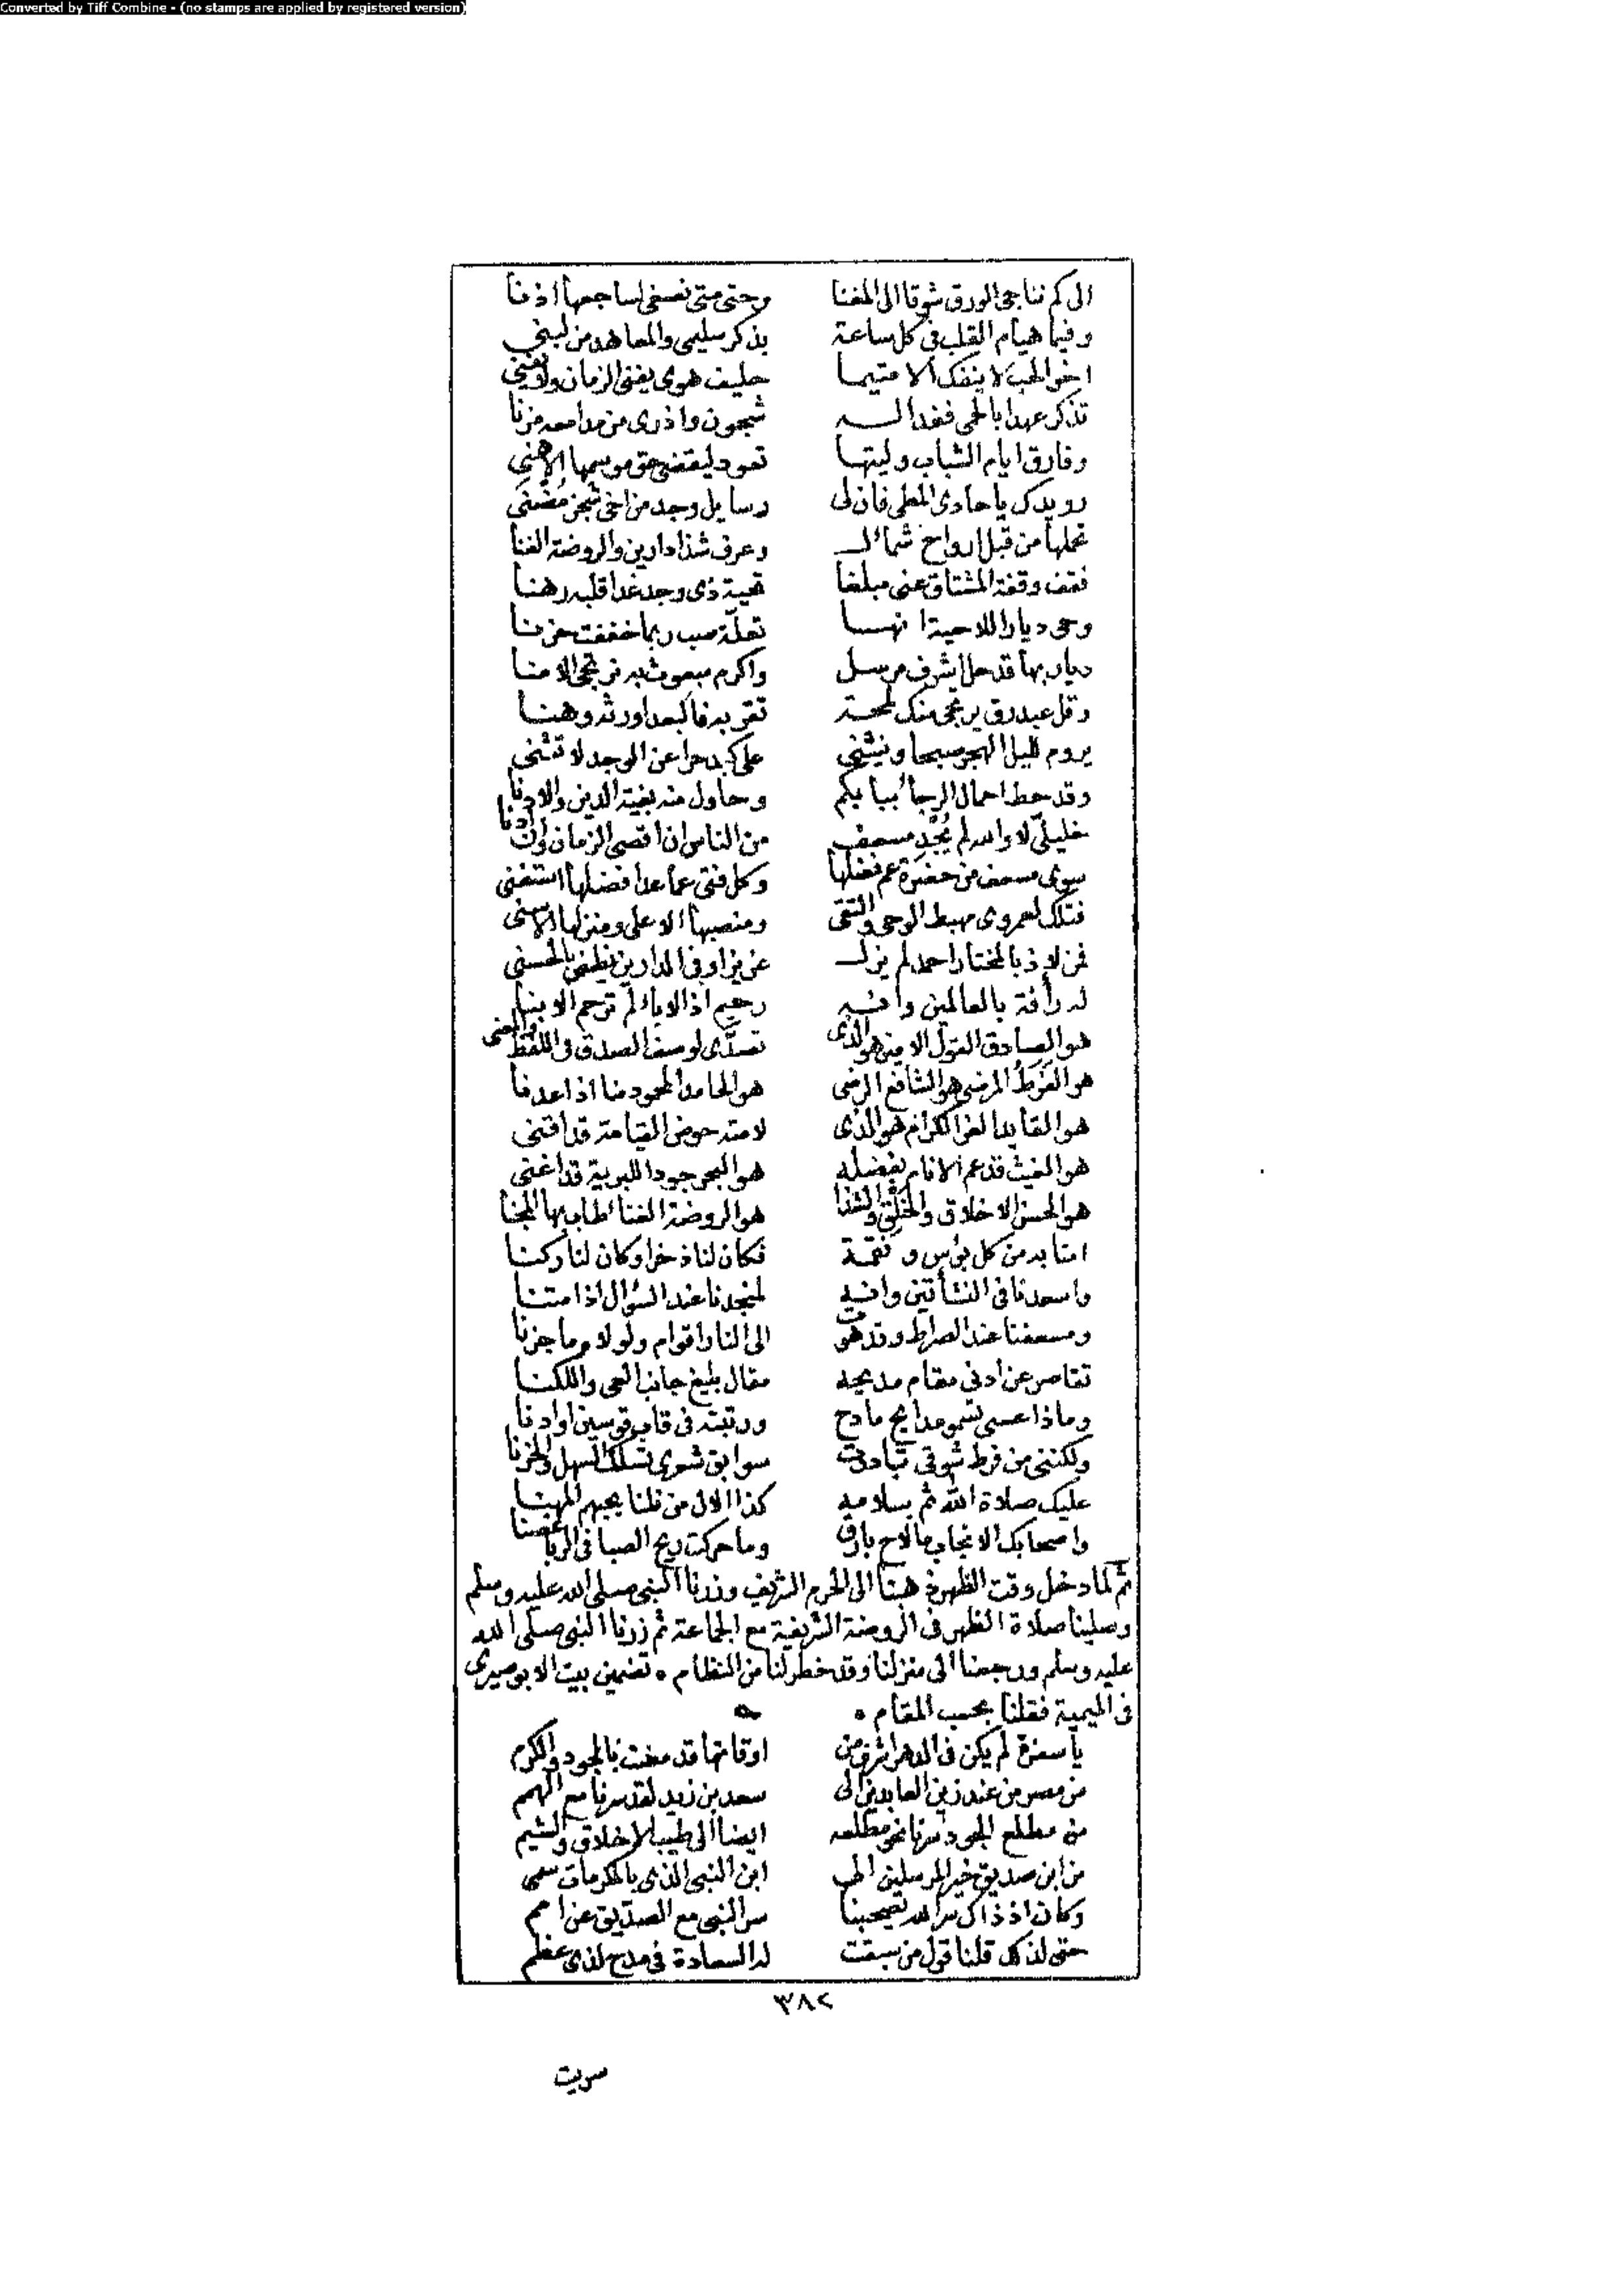 Converted by Tiff Combine - (no stamps are applied by registered version)
الى كم نناجى الورق شوقا الى المغنا وحتى متى نصغى لساجعها اذنا
وفيما هيام القلب فى كل ساعة بذكر سليمى والمعاهد من لبنى
اخو الحب لا ينفك الا متيما حليف هوى يفنى الزمان ولا يفنى
تذكر عهدا بالحمى فغدا له شجون واذرى من مدامعه مزنا
وفارق ايام الشباب وليتها تعود ليقضى حق موسمها الاهنى
رويدك يا حادى المطى فان لى رسايل وجد من اخى شجن مضنى
تحملها من قبل ارواح شمال وعرف شذا دارين والروضة الغنا
فقف وقفة المشتاق عنى مبلغا تحية ذى وجد غدا قلبه رهنا
وحى ديارا للاحبة انها تعلة صب ربما خففت حزنا
ديار بها قد حل اشرف مرسل واكرم مبعوث به نرتجى الامنا
وقل عبد رق يرتجى منك لمحة تقربه فالبعد اورثه وهنا
يروم لليل الهجر صبحا وينثنى على كبد حرا عن الوجد لا تثنى
وقد حط احمال الرجا ببابكم وحاول منه بغية الدين والادنا
خليلى لا والله لم يجد مسعف من الناس ان اقصى الزمان وان ادنا
سوى مسعف من حضرة عم فضلها وكل فتى عما عدا فضلها استغنى
فتلك لعمرى مهبط الوحى والتقى ومنصبها الاعلى ومنزلها الاسنى
فمن لاذ بالمختار احمد لم يزل عزيزا وفى الدارين يظفر بالحسنى
له رأفة بالعالمين وانه رحيم اذا الاباء لم ترحم الابنا
هو الصادق القول الامين هو الذى تصدى لوصف الصدق فى اللفظ والمعنى
هو الفرط المرضى هو الشافع الرضى هو الحامد المحمود منا اذا عدنا
هو القايد الغر الكرام هو الذى لامته حوض القيامة قد اقنى
هو الغيث قد عم الانام بفضله هو البحر جودا للبرية قد اغنى
هو الحسن الاخلاق والخلق والشذا هو الروضة الغنا طاب بها المجنا
امنا به من كل بؤس ونقمة فكان لنا ذخرا وكان لنا ركنا
واسعدنا فى النشأتين وانه لمنجدنا عند السؤال اذا متنا
ومسعفنا عند الصراط وقد هوت الى النار اقوام ولولاه ما جزنا
تقاصر عن ادنى مقام مديحه مقال بليغ جانب العى واللكنا
وماذا عسى تسمو مدايح مادح ورتبته فى قاب قوسين او ادنا
ولكننى من فرط شوقى تبادرت سوابق شعرى تسلك السهل والحزنا
عليك صلاة الله ثم سلامه كذا الال من نلنا بحبهم المنا
واصحابك الانجاب ما لاح بارق وما حركت ريح الصبا فى الربا غصنا
ثم لما دخل وقت الظهر ذهبنا الى الحرم الشريف وزرنا النبى صلى الله عليه وسلم
وصلينا صلاة الظهر فى الروضة الشريفة مع الجماعة ثم زرنا النبى صلى الله
عليه وسلم ورجعنا الى منزلنا وقد خطر لنا من النظام ٥ تضمين بيت الابوصيرى
فى الميمية فقلنا بحسب المقام ٥
يا سفرة لم يكن فى الدهر اشرف من اوقاتها قد مضت بالجود والكرم
من مصر من عند زين العابدين الى سعد بن زيد لقد سرنا مع الهمم
من مطلع الجود سرنا نحو مطلعه ايضا الى طيب الاخلاق والشيم
من ابن صديق خير المرسلين الى ابن النبى الذى بالمكرمات سمى
وكان اذ ذاك سر الله يصحبنا سر النبى مع الصديق عن امم
حتى لذلك قلنا قول من سبقت له السعادة فى مدح لذى عظم
٣٨٢
سريت